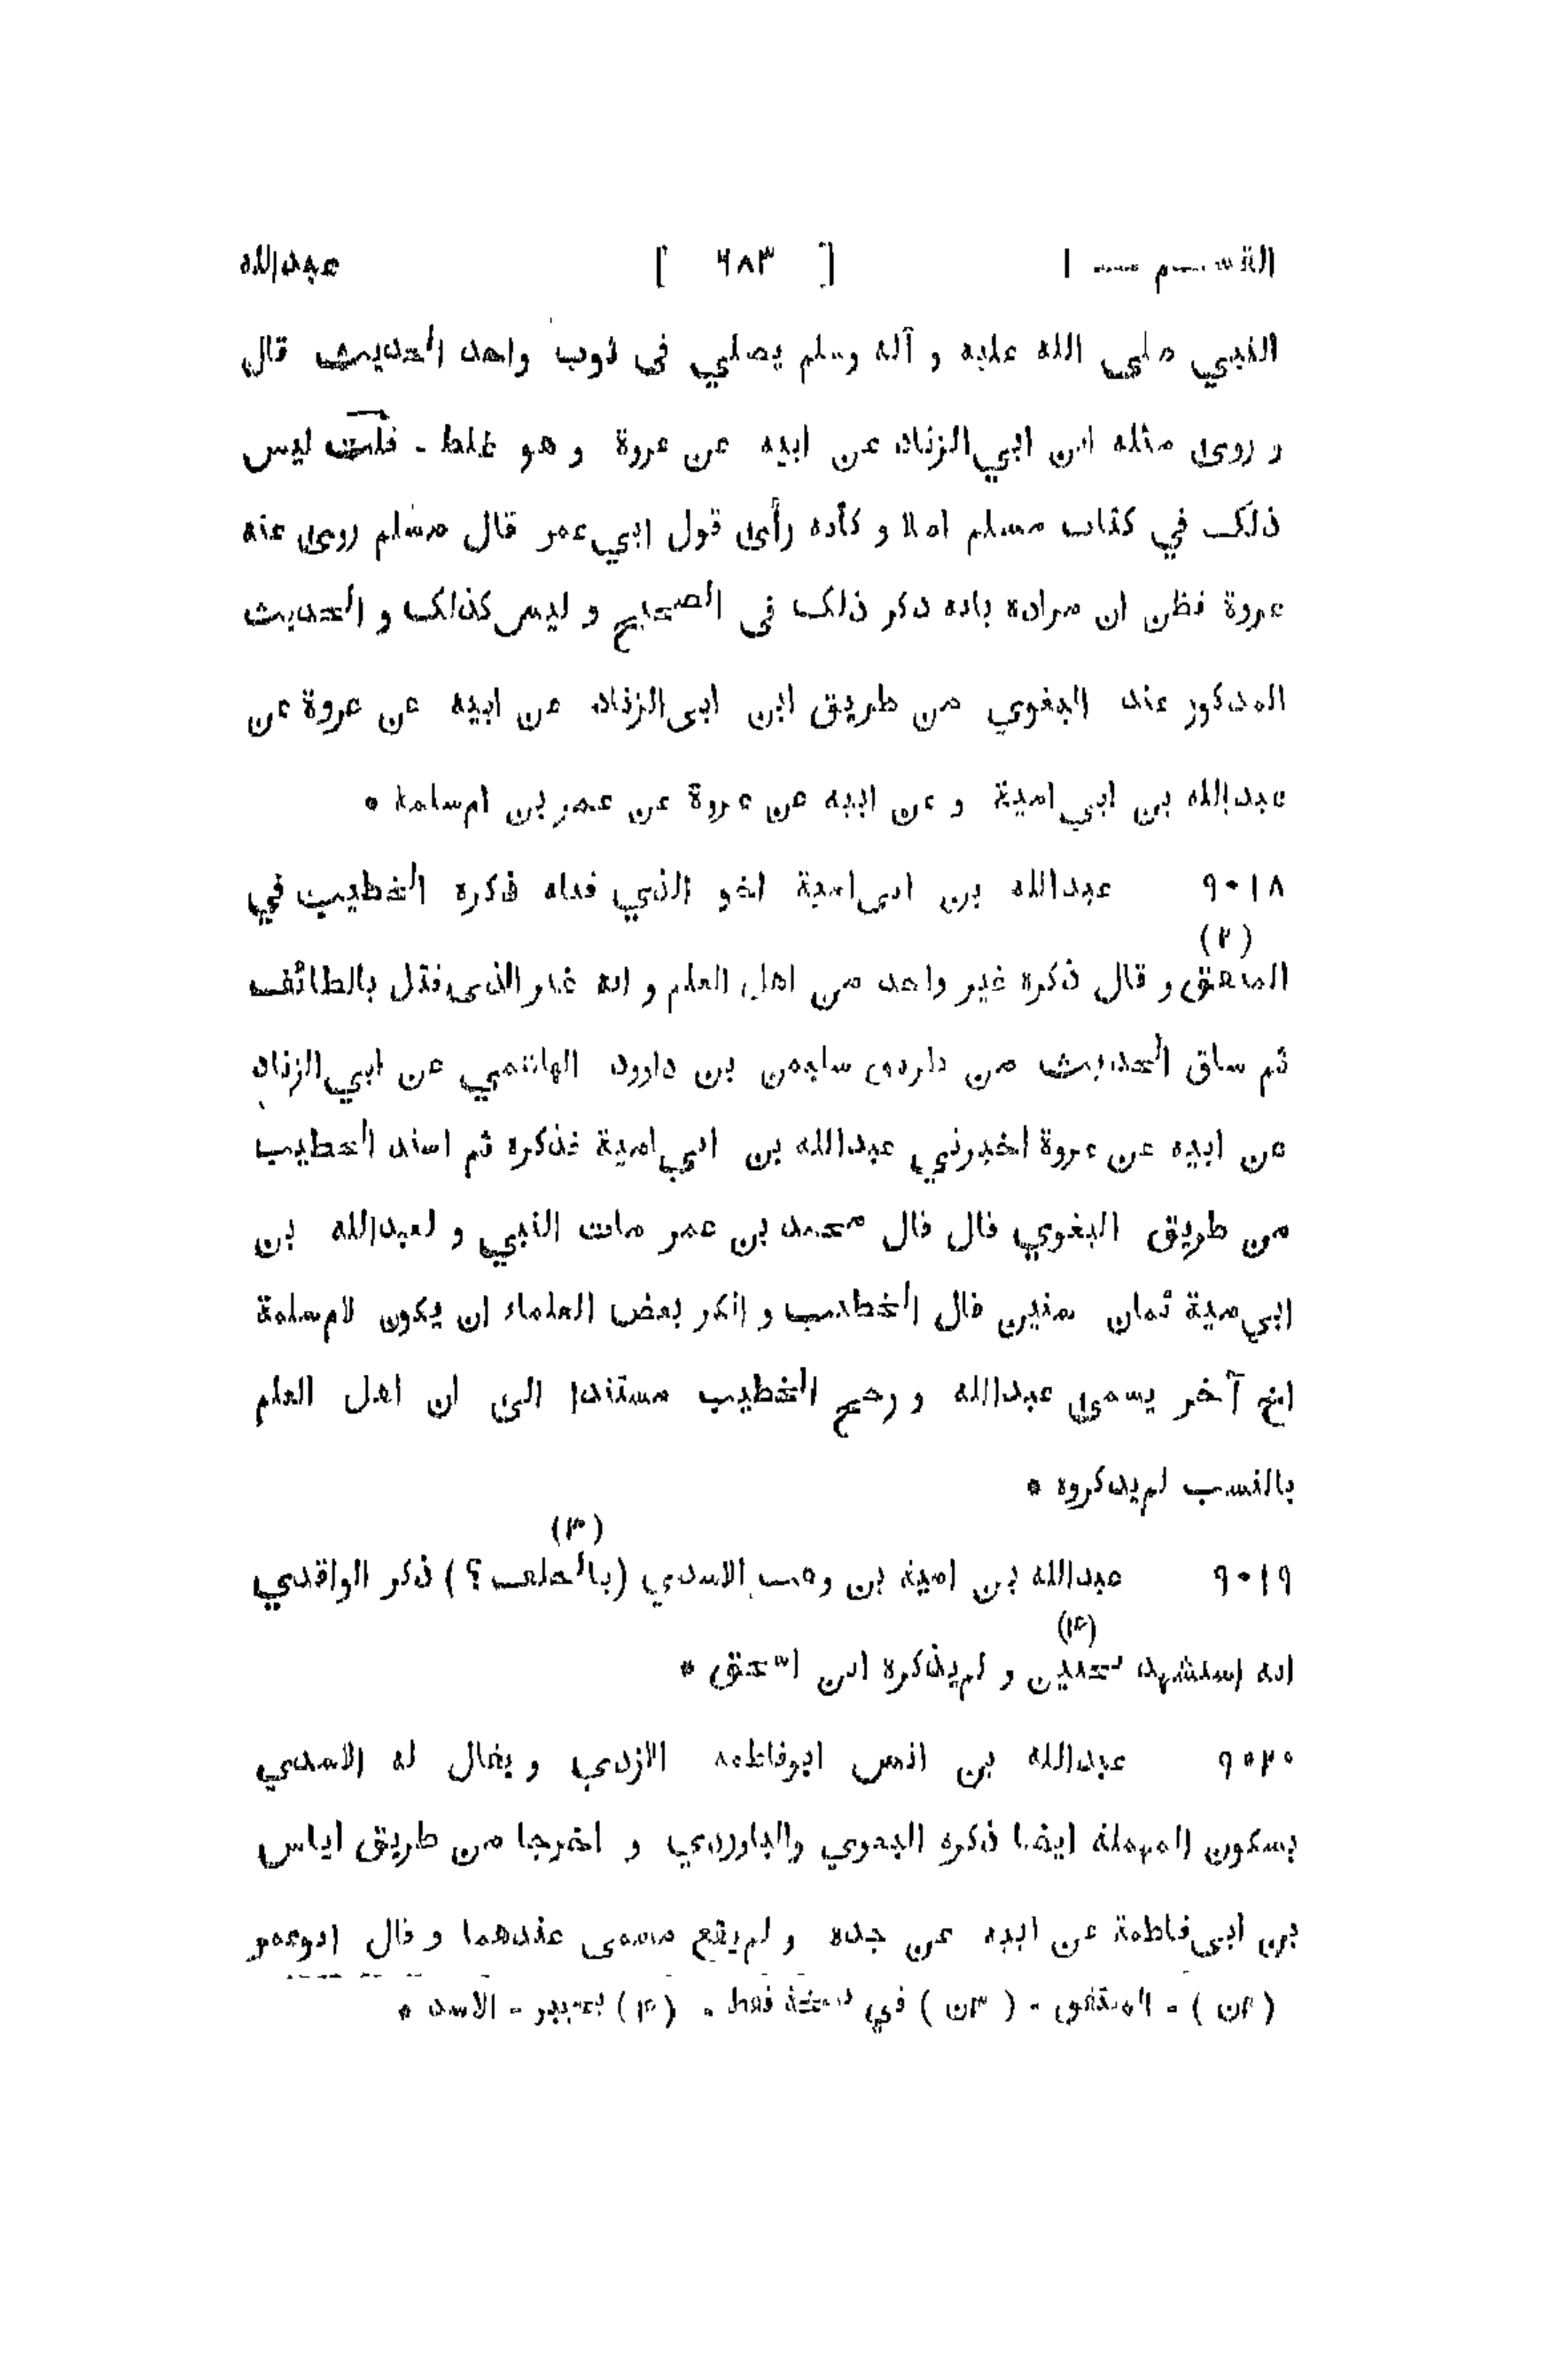 القسم — ١ [ ٦٨٣ ] عبدالله
النبي صلى الله عليه و آله وسلم يصلي في ثوب واحد الحديث قال
و روى مثله ابن ابي الزناد عن ابيه عن عروة و هو غلط - قلت ليس
ذلك في كتاب مسلم اصلا و كأنه رأى قول ابي عمر قال مسلم روى عنه
عروة فظن ان مراده بانه ذكر ذلك في الصحيح و ليس كذلك و الحديث
المذكور عند البغوي من طريق ابن ابي الزناد عن ابيه عن عروة عن
عبدالله بن ابي امية و عن ابيه عن عروة عن عمر بن ام سلمة *
٩٠١٨ عبدالله بن ابي امية اخو الذي قبله ذكره الخطيب في
(٢)
المتفق و قال ذكره غير واحد من اهل العلم و انه غير الذي قتل بالطائف
ثم ساق الحديث من طريق سليمن بن داوود الهاشمي عن ابي الزناد
عن ابيه عن عروة اخبرني عبدالله بن ابي امية فذكره ثم اسند الخطيب
من طريق البغوي قال قال محمد بن عمر مات النبي و لعبدالله بن
ابي مية ثمان سنين قال الخطيب و انكر بعض العلماء ان يكون لام سلمة
اخ آخر يسمى عبدالله و رجح الخطيب مستندا الى ان اهل العلم
بالنسب لم يذكروه *
(٣)
٩٠١٩ عبدالله بن امية بن وهب الاسدي (بالحلف ؟) ذكر الواقدي
(٤)
انه استشهد بحنين و لم يذكره ابن اسحق *
٩٠٢٠ عبدالله بن انس ابو فاطمة الازدي و يقال له الاسدي
بسكون المهملة ايضا ذكره البغوي والباوردي و اخرجا من طريق اياس
بن ابي فاطمة عن ابيه عن جده و لم يقع مسمى عندهما و قال ابو عمر
( ٢ن ) - المتفق - ( ٣ن ) في نسخة فقط - (٤) بخيبر - الاسد *